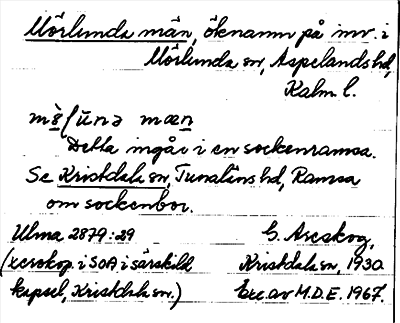 Mörlunda män, öknamn på inv. i
Mörlunda sn, Aspelands hd,
Kalm. l.
Detta ingår i en sockenramsa.
Se Kristdala sn, Tunaläns hd, Ramsa
om sockenbor.
Ulma 2879:29 G. Areskog,
(xerokop. i SOA i särskild Kristdala sn, 1930.
kapsel, Kristdala sn.) Exc. av M.D.E. 1967.